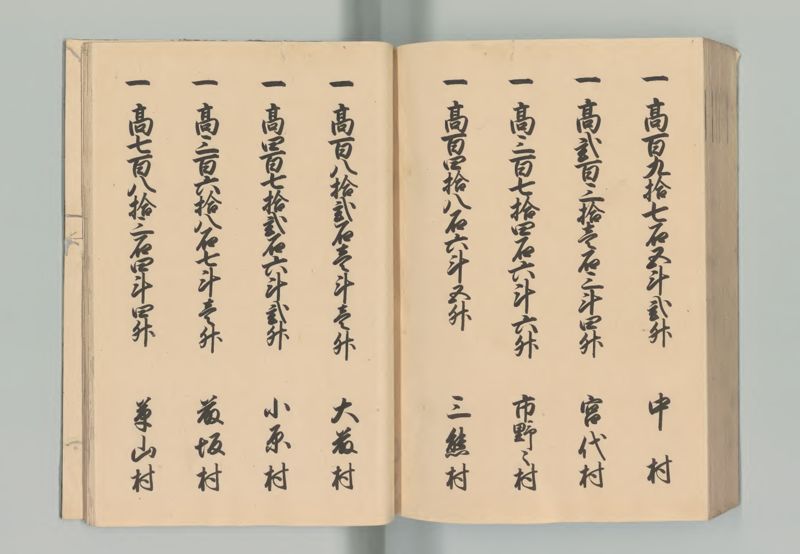 一 高百九拾七石五斗弐升 中村
一 高弐百三拾壱石三斗四升 宮代村
一 高三百七拾四石六斗六升 市野々村
一 高百四拾八石六斗五升 三熊村
一 高百八拾弐石壱斗壱升 大藪村
一 高四百七拾弐石六斗弐升 小原村
一 高三百六拾八石七斗壱升 藪坂村
一 高七百八拾三石四斗四升 草山村